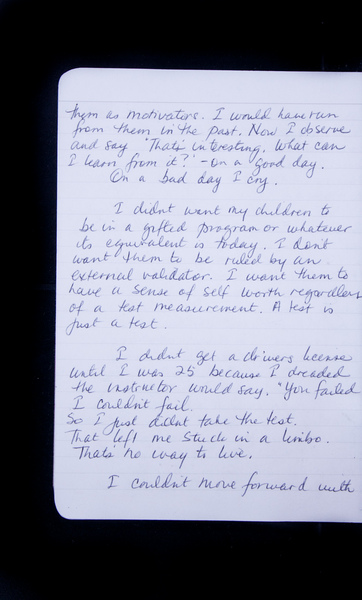 them as motivators. I would have run
from them in the past. Now I observe
and say "That's interesting. What can
I learn from it?" - on a good day.
On a bad day I cry.
I didnt want my children to
be in a gifted program or whatever
its equivalent is today. I don't
want them to be ruled by an
external validator. I want them to
have a sense of self worth regardless
of a test measurement. A test is
just a test.
I didnt get a drivers license
until I was 25 because I dreaded
the instructor would say, "You failed
I couldn't fail.
So I just didnt take the test.
That left me stuck in a limbo.
That's no way to live.
I couldn't move forward with